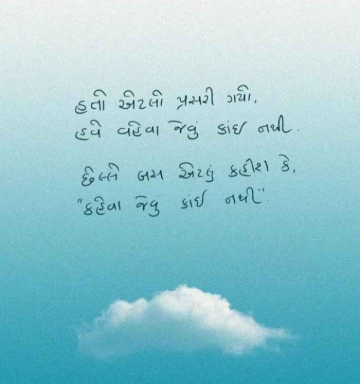 હતો એટલો પ્રસરી ગયો,
હવે વહેવા જેવું કાંઈ નથી.
છેલ્લે બસ એટલું કહીશ કે,
"કહેવા જેવુ કાંઈ નથી"